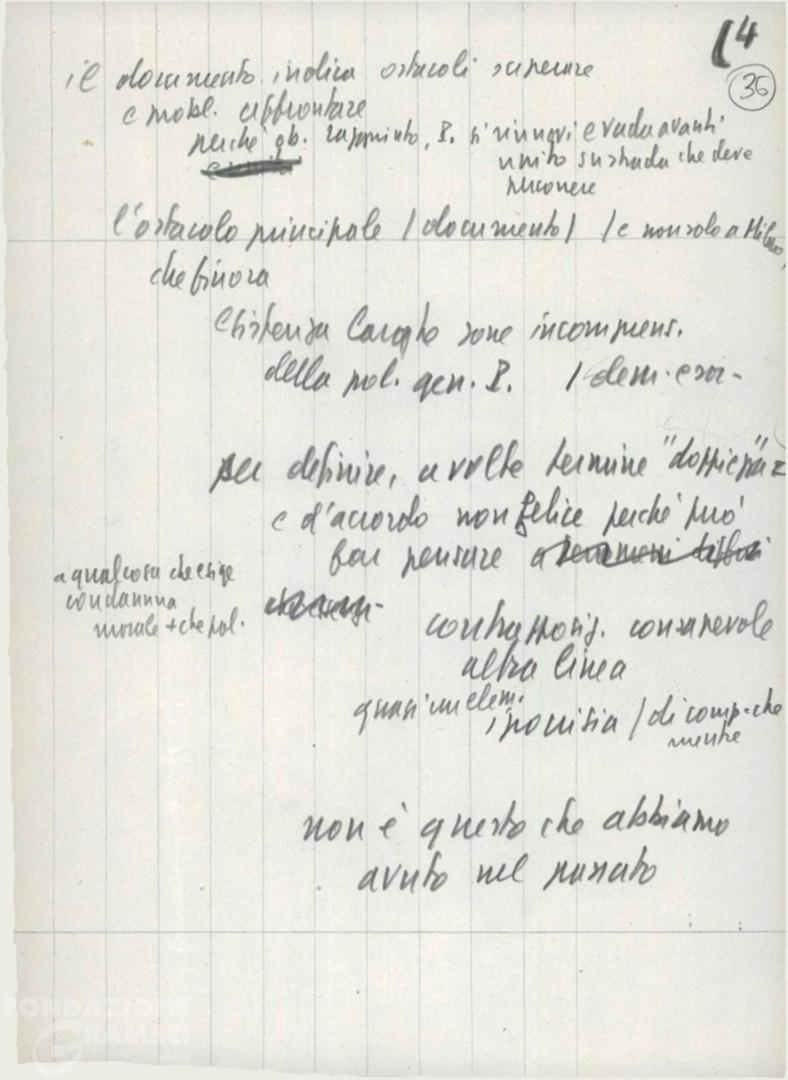 (4
36
il documento indica ostacoli superare
e probl. affrontare
perché ob. raggiunto, P. si rinnovi e vada avanti
unito su strada che deve
percorrere
l'ostacolo principale (documento) (e non solo a Milano,
che finora
Esistenza larghe zone incomprens.
della pol. gen. P.
per definire, a volte termine "doppiezza"
e d'accordo non felice perché può
far pensare a fenomeni diffusi
a qualcosa che esige
condanna
morale + che pol.
contrapposiz. consapevole
altra linea
quasi un elem.
ipocrisia / di comp. che
mente
non è questo che abbiamo
avuto nel passato
FONDAZIONE
GRAMSCI